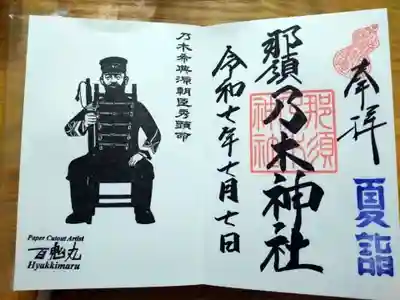 奉拝
夏詣
那須乃木神社
那須
神社
令和七年七月七日
乃木希典源朝臣秀顕命
Paper Cutout Artist
百鬼丸
Hyakkimaru